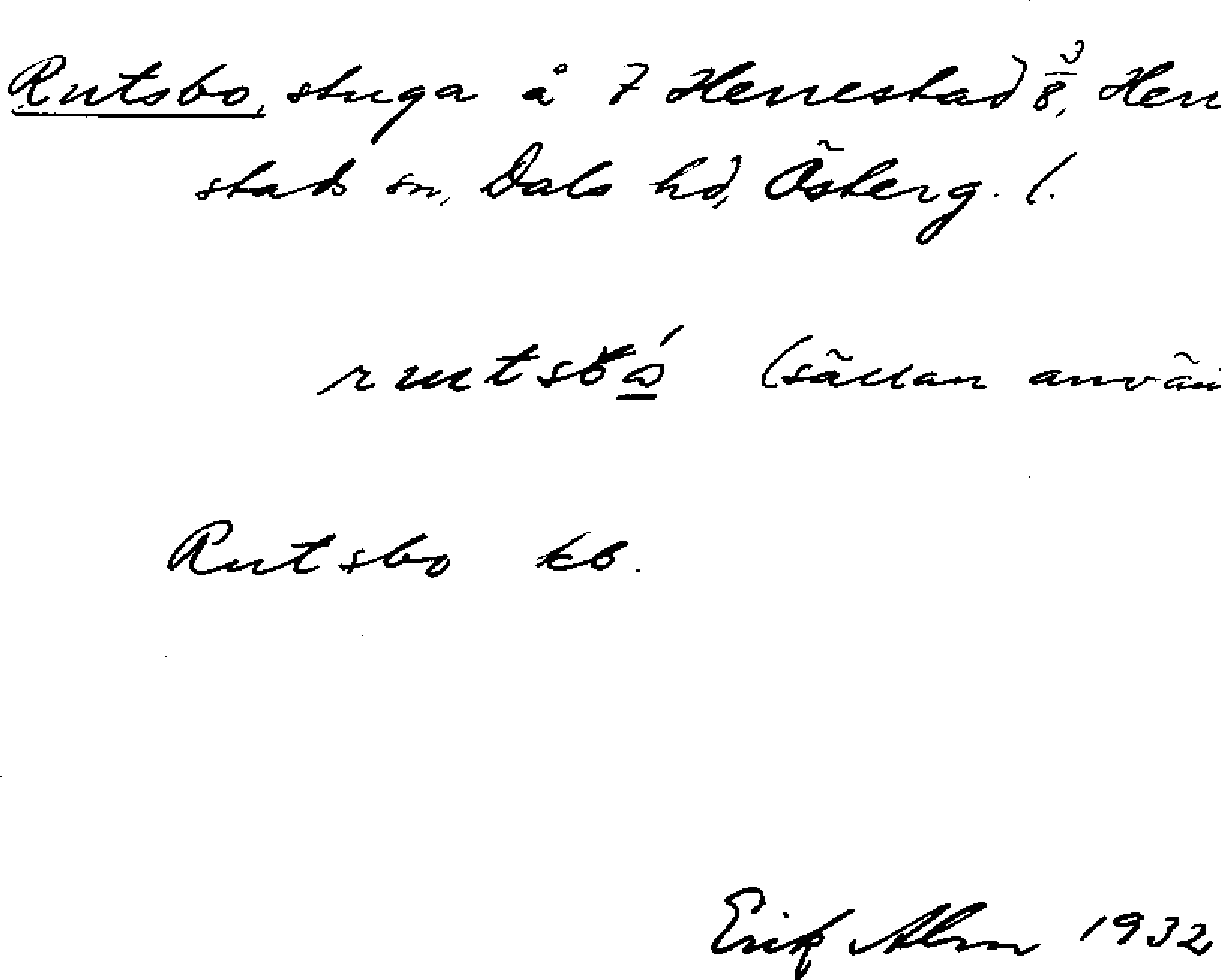 Rutsbo, stuga å 7 Herrestad 3/8, Herr
stads sn, Dals hd, Österg. l.
rutsbó (sällan använ
Rutsbo kb.
Erik Alm 1932